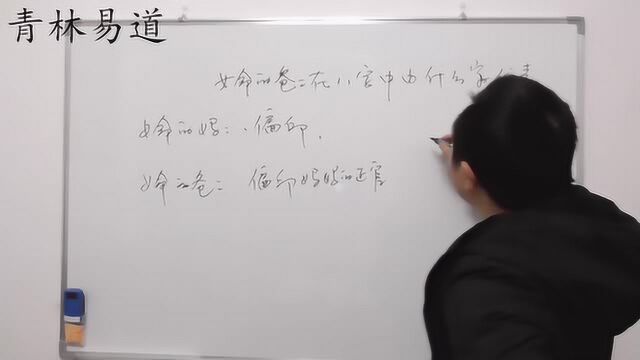 青林易道
女命的爸=在八字中由什么家代表
女命的妈：偏印.
女命的爸= 偏印妈妈的正官